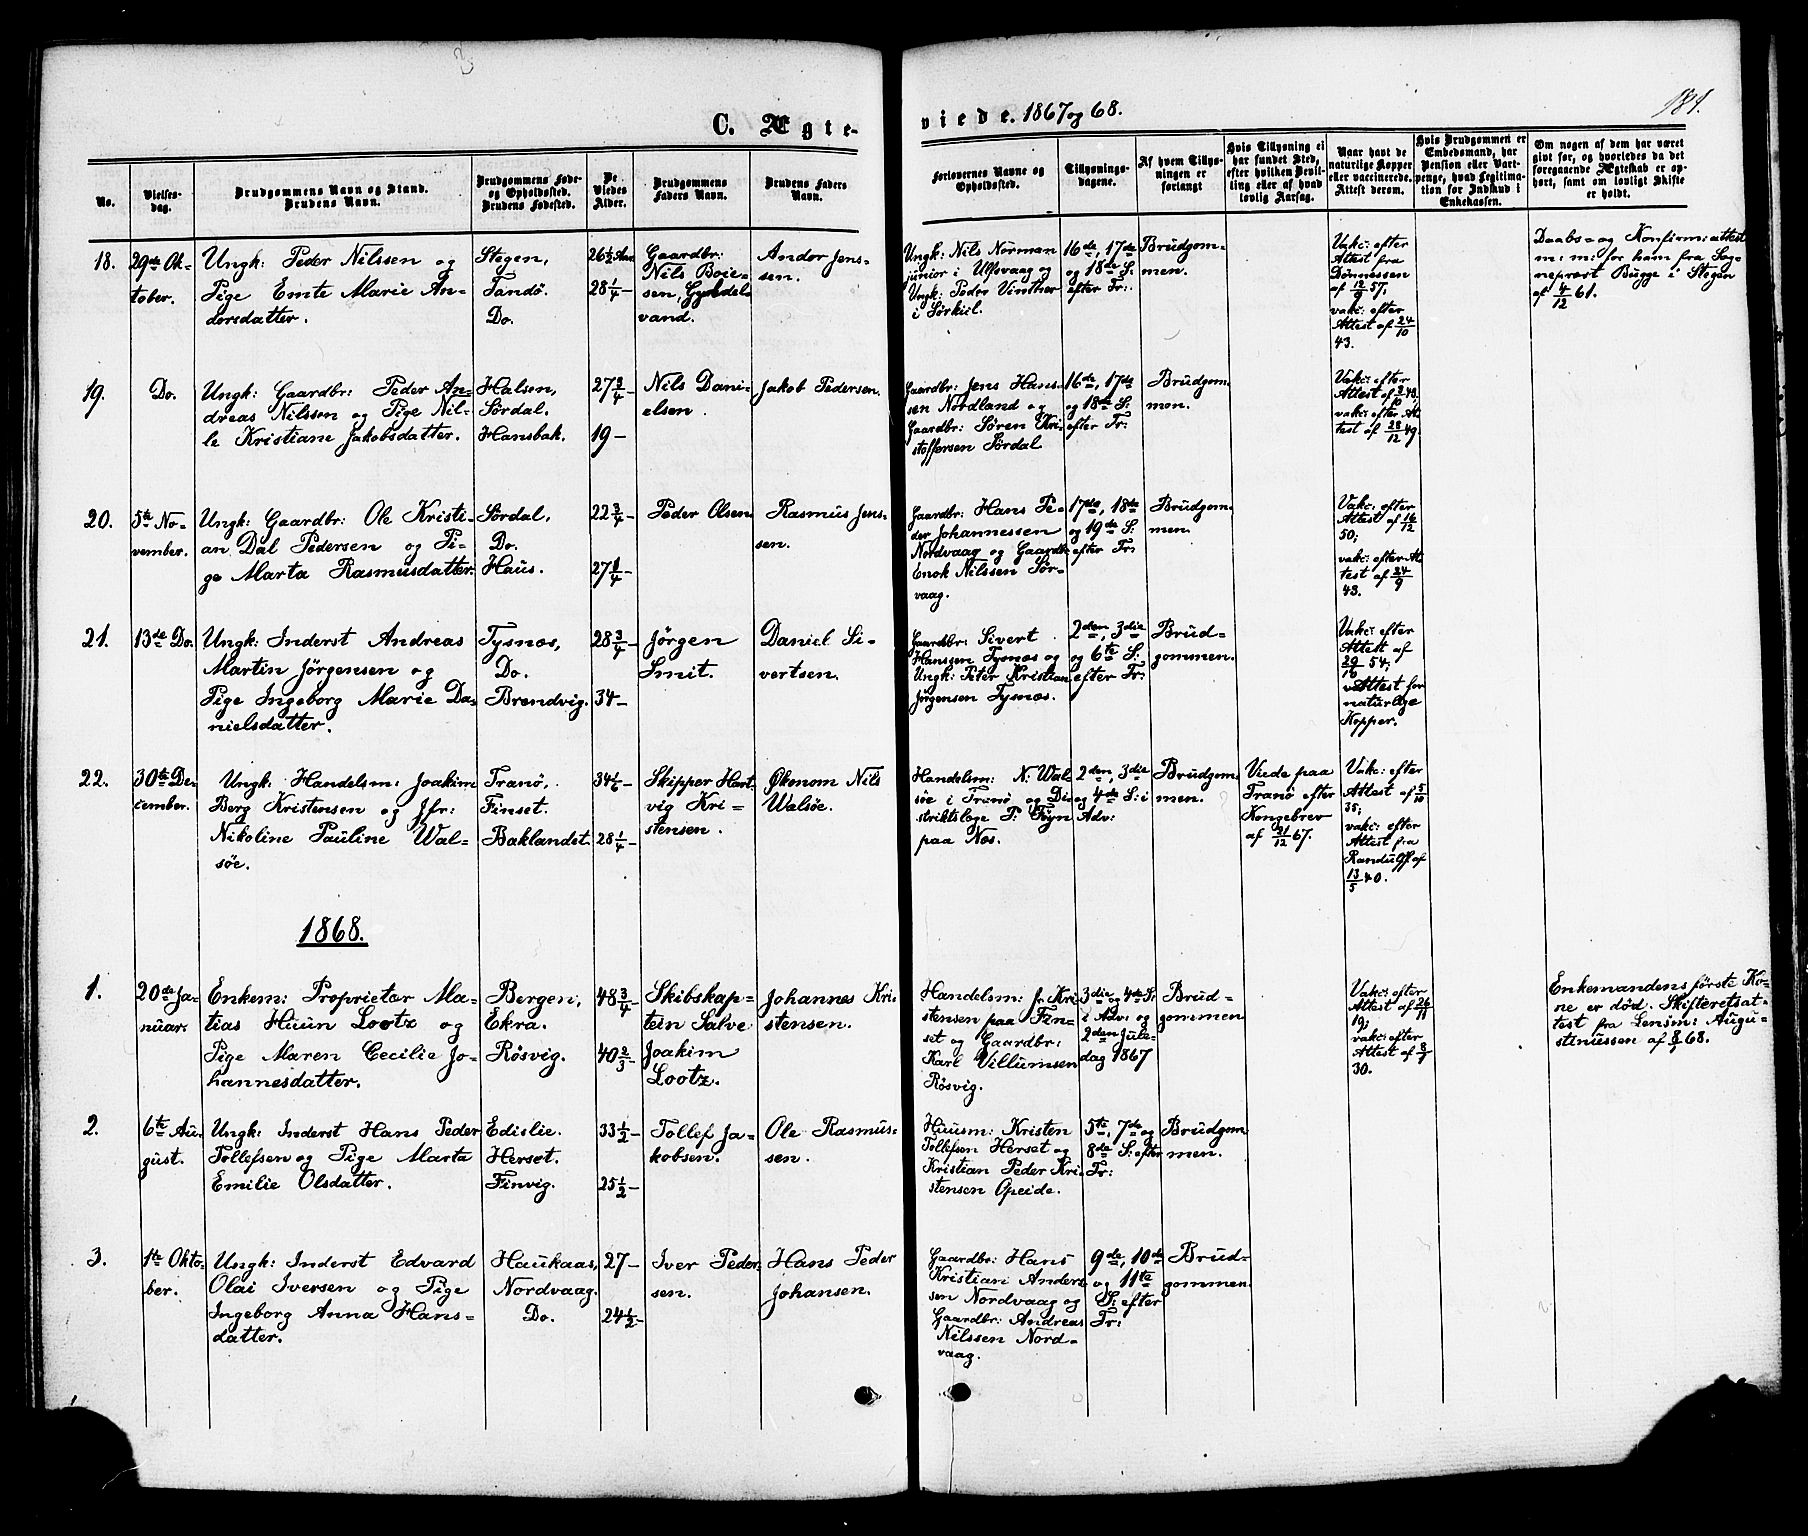 C. Ægte-
viede. 1867 og 68.
181.
No.
Vielses-
dag.
Brudgommens Navn og Stand.
Brudens Navn.
Brudgommens Føde-
og Opholdssted.
Brudens Fødested.
De
Viedes
Alder.
Brudgommens
Faders Navn.
Brudens Faders
Navn.
Forlovernes Navne og
Opholdssted.
Tillysnings-
dagene.
Af hvem Tillys-
ningen er
forlangt
Hvis Tillysning ei
har fundet Sted,
efter hvilken Bevil-
ling eller af hvad
lovlig Aarsag.
Naar havt de
naturlige Kopper
eller vaccinerede.
Attest derom.
Hvis Brudgommen er
Embedsmand, har
Pension eller Vart-
penge, hvad Legitima-
tion for Indskud i
Enkekassen.
Om nogen af dem har været
givt før, og hvorledes da det
foregaaende Ægteskab er op-
hørt, samt om lovligt Skifte
er holdt.
18.
29de Ok-
tober.
Ungk: Peder Nilssen og
Pige Emte Marie An-
dersdatter.
Stegen,
Tandö.
Do.
26 1/2 Aar
28 1/4 -
Gaardbr:
Nils Boie-
sen,
vand.
Andor Jens-
sen.
Ungk: Nils Norman
junior i Ulfsvaag og
Ungk: Peder Vinther
i Sörkiil.
16de, 17de
og 18de S:
efter Tr:
Brudgom-
men.
Vakc: efter
Attest fra
Dönnessen
af 12/9 57.
vakc: efter
Attest af 24/10
43.
Daabs- og Konfirm: attest
m: m: for ham fra Sog-
nepræst Bugge i Stegen
af 4/12 61.
19.
Do.
Ungk: Gaardbr: Peder An-
dreas Nilssen og Pige Nil-
le Kristiane Jakobsdatter.
Halsen,
Sördal.
Hansbak.
27 3/4 -
19 -
Nils Dani-
elsen.
Jakob Pedersen.
Gaardbr: Jens Hans-
sen Nordland og
Gaardbr: Sören Kri-
stoffersen Sördal
16de, 17de
og 18de S:
efter Tr:
Brudgom-
men.
Vakc: efter
Attest af
vakc: efter At-
test af 28/12 49.
20.
5te No-
vember.
Ungk: Gaardbr: Ole Kristi-
an Dal Pedersen og Pi-
ge Marta Rasmusdatter.
Sördal,
Do.
Haus.
22 3/4 -
27 1/4 -
Peder Olsen
Rasmus Jens-
sen.
Gaardbr: Hans Pe-
der Johannessen
Nordvaag og Gaardbr:
Enok Nilssen Sör-
vaag.
17de, 18de
og 19de S:
efter Tr:
Brudgom-
men.
Vakc: efter
Attest af 16/12
50;
vakc: efter At-
test af 24/9
43.
21.
13de Do.
Ungk: Inderst Andreas
Martin Jörgensen og
Pige Ingeborg Marie Da-
nielsdatter.
Tysnæs,
Do.
Brendvig.
28 3/4 -
34 -
Jörgen
Smit.
Daniel Si-
vertsen.
Gaardbr: Sivert
Hanssen Tysnæs og
Ungk: Peter Kristian
Jörgensen Tysnæs.
2den, 3die
og 6te S:
efter Tr:
Brud-
gommen.
Vakc: efter
Attest af
29/10 54;
Attest for
naturlige
Kopper.
22.
30te De-
cember.
Ungk: Handelsm: Joakim
Berg Kristensen og Jfr:
Nikoline Pauline Wal-
söe.
Tranö,
Finset.
Baklandet.
34 1/6 -
28 1/4 -
Skipper Hart-
vig Kri-
stensen.
Økonom Nils
Walsöe.
Handelsm: N: Wal-
söe i Tranö og Di-
striktslæge P: Fryn
paa Næs.
2den, 3die
og 4de S: i
Adv:
Brudgom-
men.
Viede paa
Tranö efter
Kongebrev
af 21/12 67.
Vakc: efter
Attest af 5/10
35;
vakc: efter
Attest fra
Randulff af
13/5 40.
1868.
1.
20de Ja-
nuar.
Enkem: Proprietær Ma-
tias Huun Lootz og
Pige Maren Cecilie Jo-
hannesdatter.
Bergen,
Ekra.
Rösvig.
48 3/4 -
40 2/3 -
Skibskap-
tein Salve
Joakim
Lootz.
Johannes Kri-
stensen.
Handelsm: Jr Kri-
stensen paa Fin-
set og Gaardbr:
Karl Villumsen
Rösvig.
3die og 4de S:
i Adv: og
2den Jule-
dag 1867
Brud-
gommen
Vakc: efter
Attest af 26/11
19;
vakc: efter
Attest af 8/9
30.
Enkemandens förste Ko-
ne er död. Skifteretsat-
test fra Lensm: Augu-
stinussen af 8/1 68.
2.
6te Au-
gust.
Ungk: Inderst Hans Peder
Tollefsen og Pige Marta
Emilie Olsdatter.
Edislie.
Herset.
Finvig.
33 1/2 -
25 1/2 -
Tollef Ja-
kobsen.
Ole Rasmus-
sen.
Huusm: Kristen
Tollefsen Herset og
Kristian Peder Kri-
stensen Opeide.
5te, 7de og
8de S: efter
Tr:
Brudgom-
men.
3.
1ste Okto-
ber.
Ungk: Inderst Edvard
Olai Iversen og Pige
Ingeborg Anna Hans-
datter.
Haukaas,
Nordvaag.
Do.
27 -
24 1/2 -
Iver Peder-
sen.
Hans Peder
Johansen.
Gaardbr: Hans
Kristian Ander-
sen Nordvaag og
Gaardbr: Andreas
Nilssen Nord-
vaag.
9de, 10de
og 11te
S: efter
Tr:
Brud-
gommen.